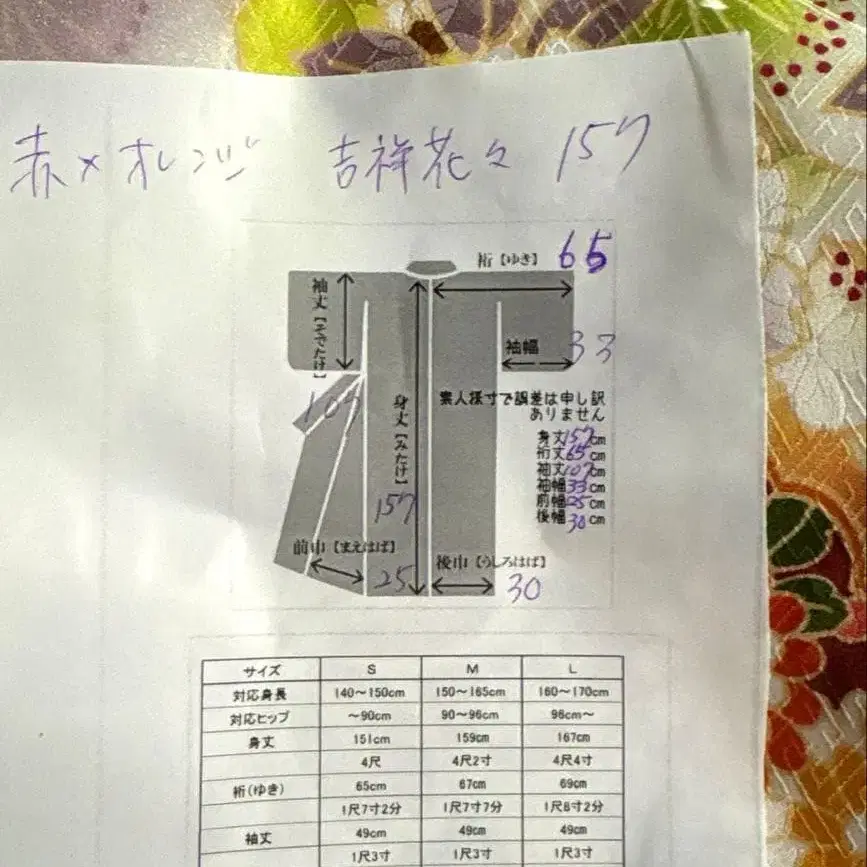 赤×オレンジ 吉祥花々 157
裄【ゆき】 65
袖丈【そでたけ】
107
袖幅 33
身丈【みたけ】
157
素人採寸で誤差は申し訳
ありません
身丈157cm
裄丈65cm
袖丈107cm
袖幅33cm
前幅25cm
後幅30cm
前巾【まえはば】
25
後巾【うしろはば】
30
サイズ S M L
対応身長 140～150cm 150～165cm 160～170cm
対応ヒップ ～90cm 90～96cm 96cm～
身丈 151cm 159cm 167cm
4尺 4尺2寸 4尺4寸
裄(ゆき) 65cm 67cm 69cm
1尺7寸2分 1尺7寸7分 1尺8寸2分
袖丈 49cm 49cm 49cm
1尺3寸 1尺3寸 1尺3寸